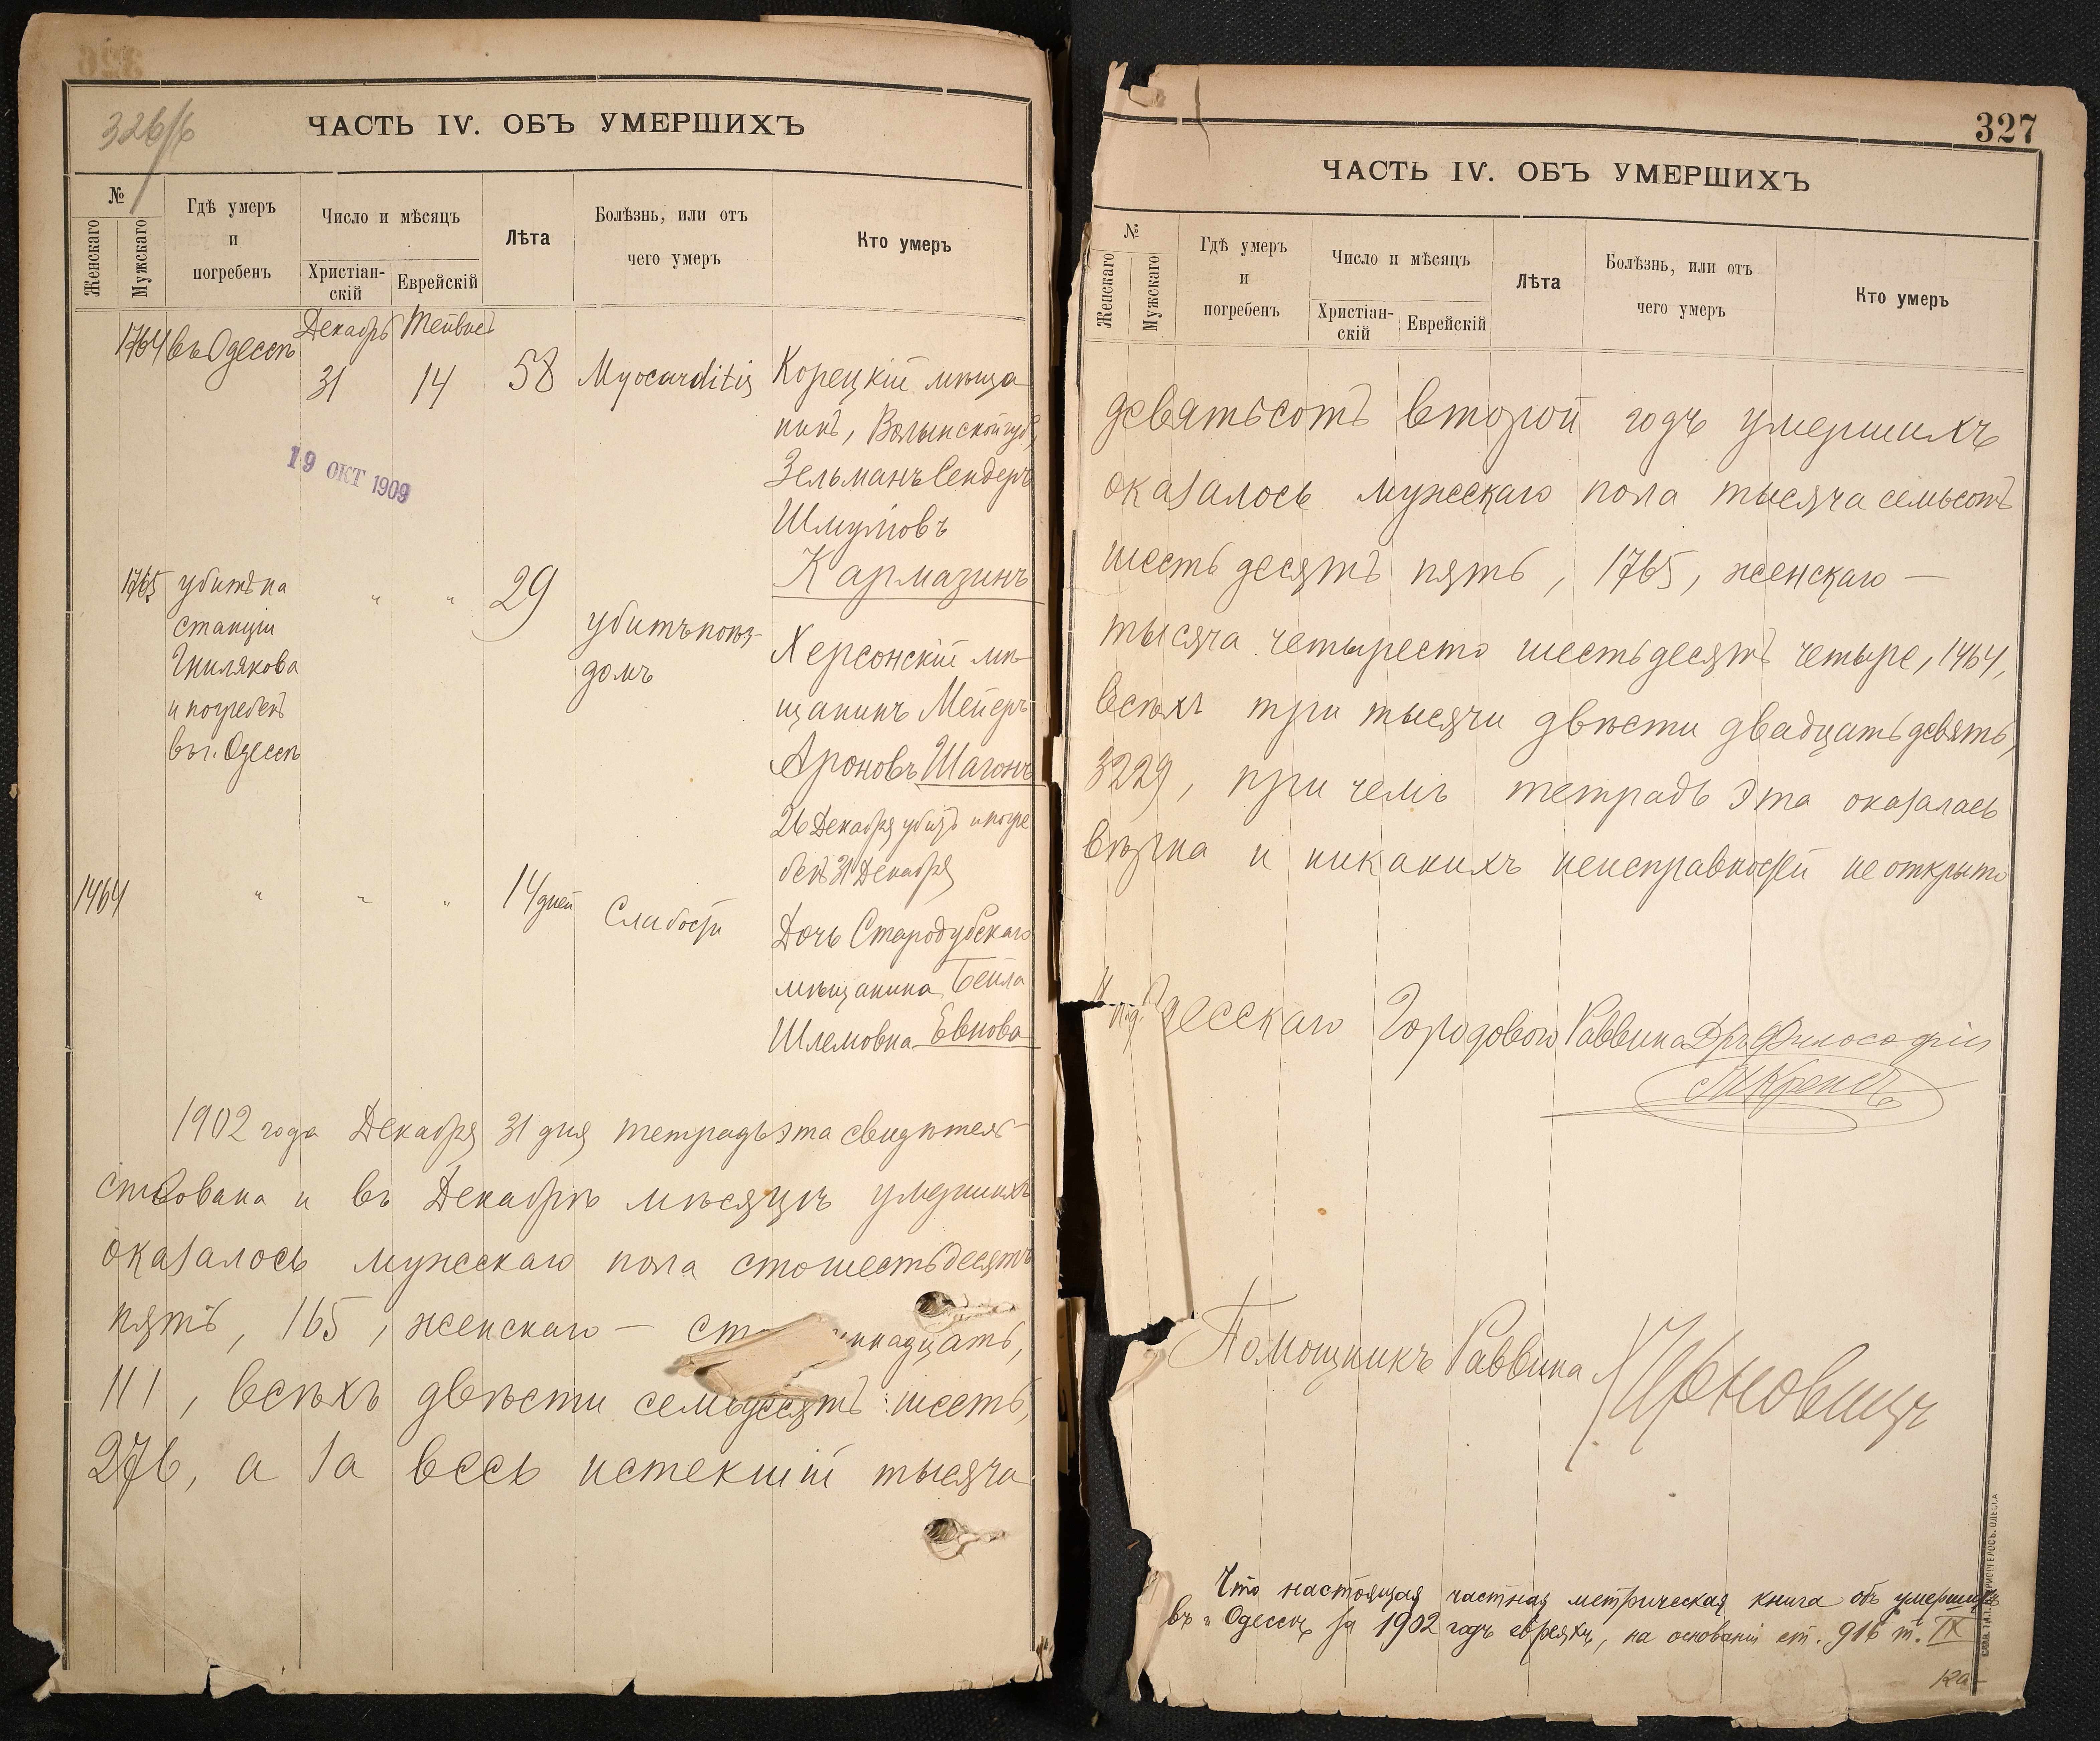 326/б
ЧАСТЬ IV. ОБЪ УМЕРШИХЪ
№
Женскаго
Мужскаго
Гдѣ умеръ и погребенъ
Число и мѣсяцъ
Христіан-скій
Еврейскій
Лѣта
Болѣзнь, или отъ чего умеръ
Кто умеръ
Декабрь Тейвиет
1764 въ Одессѣ
31 14 58 Myocarditis Корецкій мѣща
нинъ, Волынской губ,
19 ОКТ 1909
Зельманъ Сендеръ
Шмулiовъ
Кармазинъ
1765 убитъ на
станціи
Гнилякова
и погребенъ
въ г. Одессѣ
" " 29
убитъ поѣз-
домъ
Херсонскій мѣ-
щанинъ Мейеръ
Ароновъ Шагонъ
26 Декабря убитъ и погре
бенъ 31 Декабря
1464 " " " 14 дней Слабости
Дочь Стародубскаго
мѣщанина Бейла
Шлемовна Евнова
1902 года Декабря 31 дня тетрадь эта свидѣтель-
ствована и въ Декабрѣ мѣсяцѣ умершихъ
оказалось мужескаго пола сто шестьдесятъ
пять, 165, женскаго — ст ннадцать,
111, всѣхъ двѣсти семьдесятъ шесть,
276, а за весь истекшій тысяча
327
ЧАСТЬ IV. ОБЪ УМЕРШИХЪ
№
Женскаго
Мужскаго
Гдѣ умеръ и погребенъ
Число и мѣсяцъ
Христіан-скій
Еврейскій
Лѣта
Болѣзнь, или отъ чего умеръ
Кто умеръ
девятьсотъ второй годъ умершихъ
оказалось мужескаго пола тысяча семьсотъ
шестьдесятъ пять, 1765, женскаго —
тысяча четыресто шестьдесятъ четыре, 1464,
всѣхъ три тысячи двѣсти двадцать девять,
3229, при чемъ тетрадь эта оказалась
вѣрна и никакихъ неисправностей не открыто
И. п. д. Одесскаго Городового Раввина Дръ Философіи
Крепсъ
Помощникъ Раввина
Что настоящая частная метрическая книга объ умершихъ
въ г. Одессѣ за 1902 годъ евреяхъ, на основаніи ст. 916 т. IX
ка-